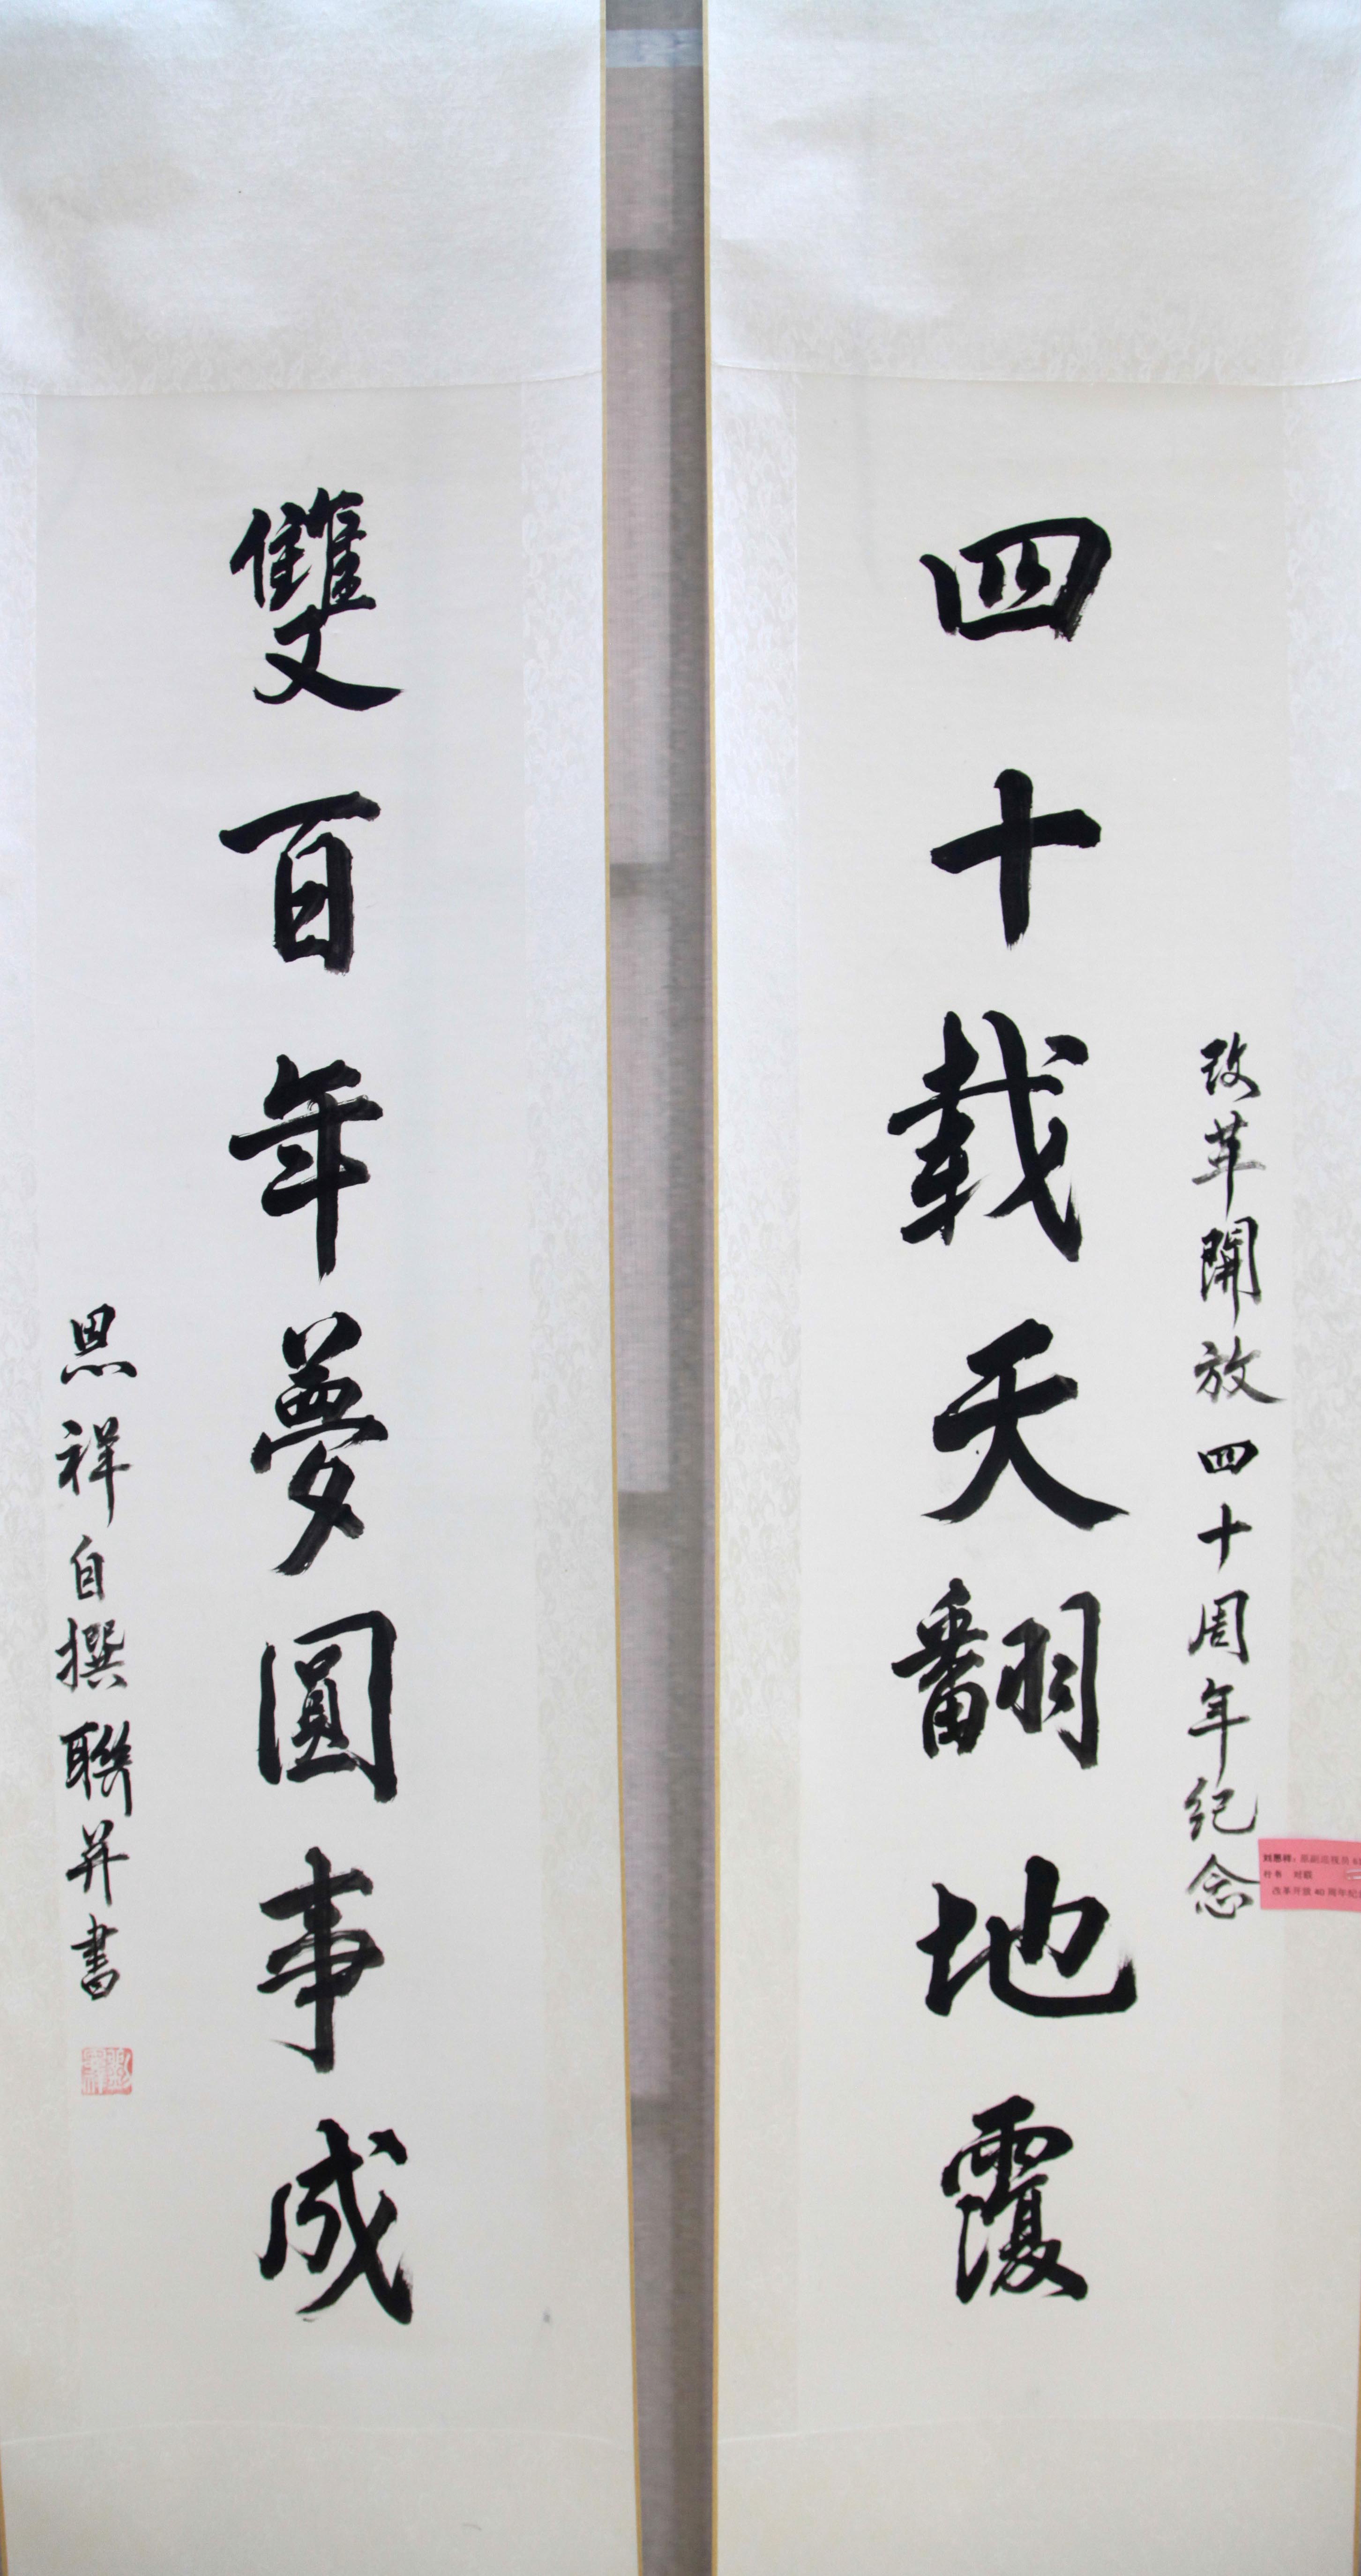 改革開放四十周年纪念
四十载天翻地覆
雙百年夢圓事成
恩祥自撰聯并書
刘恩祥：原副巡视员
行书 对联
改革开放40周年纪